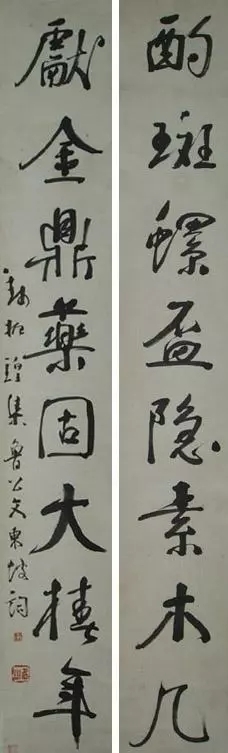 酌斑螺盃隐素木几
獻金鼎藥固大椿年
錢振鍠集魯公文東坡詞